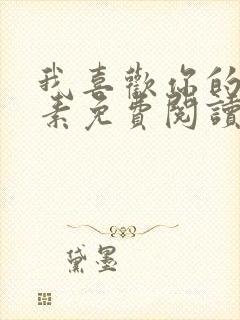 我喜歡你的
素免費閱讀
黛墨